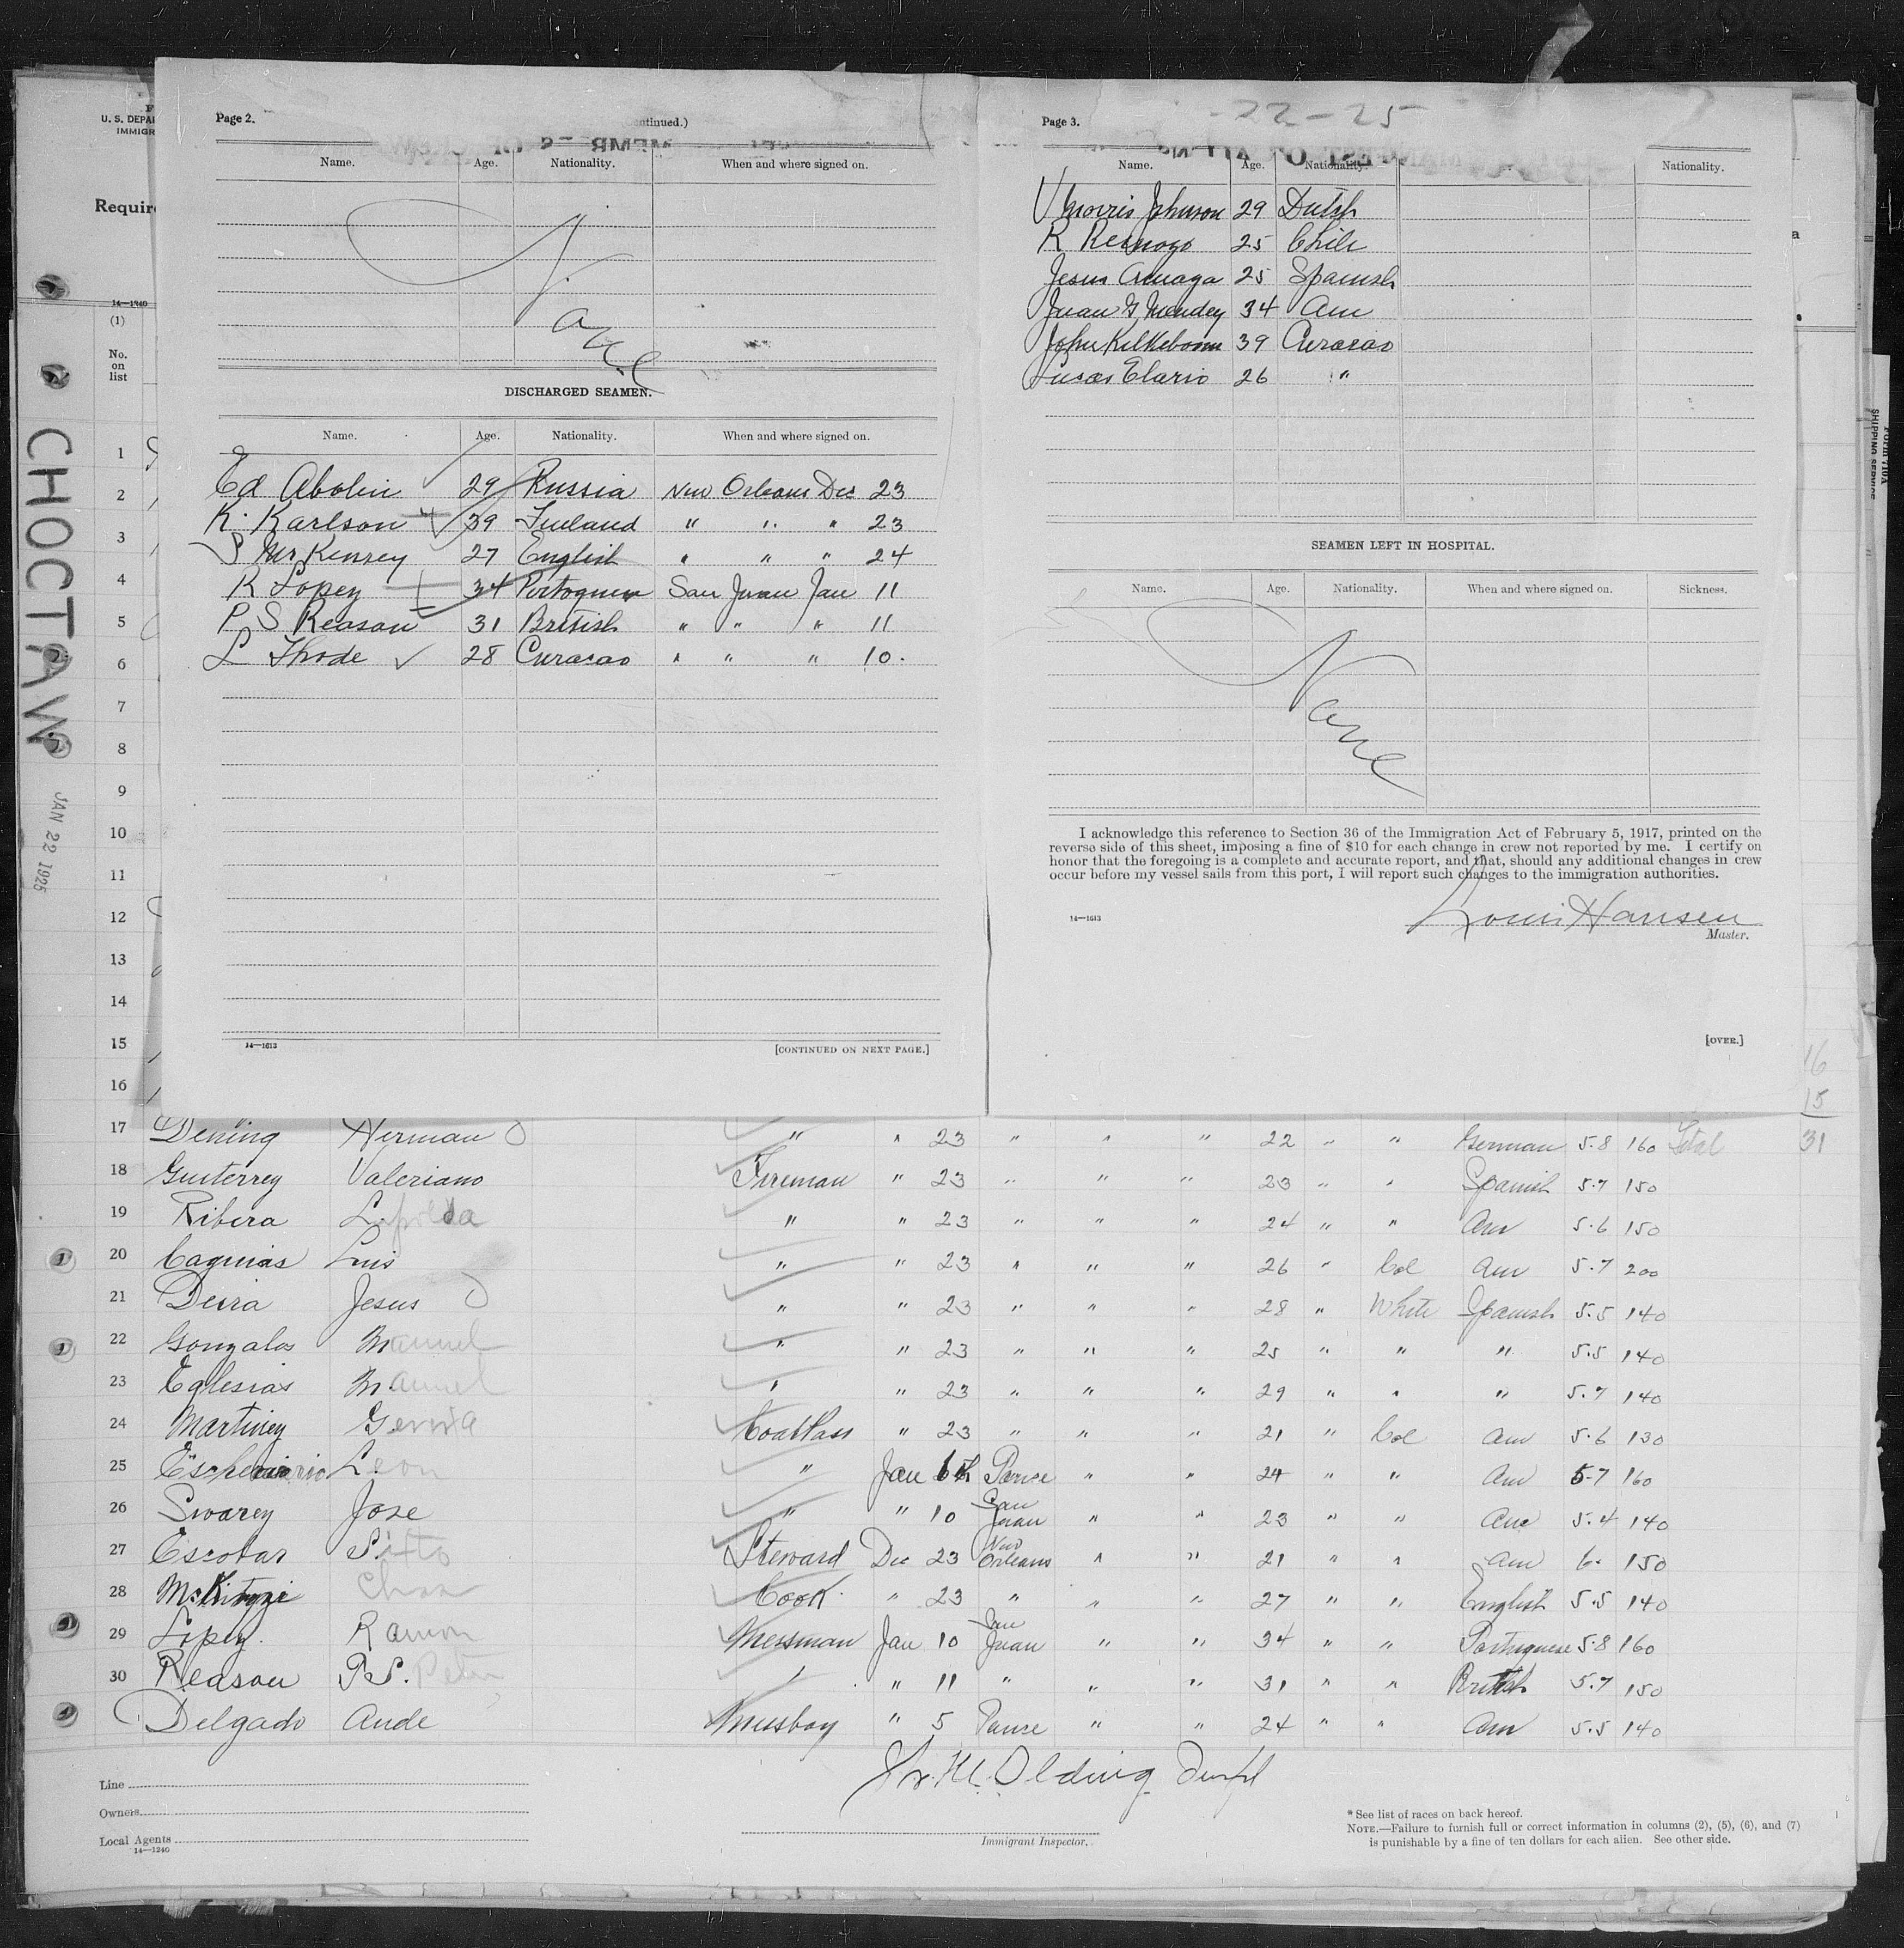 U. S. DEPA
IMMIGR
Require
14—1240
(1)
No.
on
list
CHOCTAW
JAN 22 1925
Page 2.
ntinued.)
Name. Age. Nationality. When and where signed on.
None
DISCHARGED SEAMEN.
Name. Age. Nationality. When and where signed on.
Ed Abolin 29 Russia New Orleans Dec 23
K. Karlson 39 Finland " " " 23
S McKenrey 27 English " " " 24
R Lopez 34 Portoguese San Juan Jan 11
P S Reason 31 British " " " 11
L Thode 28 Curacao " " " 10.
14—1613
[CONTINUED ON NEXT PAGE.]
22-25
Page 3.
Name. Age. Nationality. Nationality.
Morris Johnson 29 Dutch
R 25 Chile
Jesus 25 Spanish
Juan G Mendez 34 Am
John Kilkeboom 39 Curacao
Lucas Elario 26 "
SEAMEN LEFT IN HOSPITAL.
Name. Age. Nationality. When and where signed on. Sickness.
None
I acknowledge this reference to Section 36 of the Immigration Act of February 5, 1917, printed on the
reverse side of this sheet, imposing a fine of $10 for each change in crew not reported by me. I certify on
honor that the foregoing is a complete and accurate report, and that, should any additional changes in crew
occur before my vessel sails from this port, I will report such changes to the immigration authorities.
14—1613
Louis Hansen
Master.
[OVER.]
16
15
1
2
3
4
5
6
7
8
9
10
11
12
13
14
15
16
17 Dening Herman " " 23 " " " 22 " " German 5.8 160 Total 31
18 Guiterrez Valeriano Fireman " 23 " " " 23 " " Spanish 5.7 150
19 Ribera L " " 23 " " " 24 " " Am 5.6 150
20 Caquias Luis " " 23 " " " 26 " Col Am 5.7 200
21 Deira Jesus " " 23 " " " 28 " White Spanish 5.5 140
22 Gonzalos Manuel " " 23 " " " 25 " " " 5.5 140
23 Eglesias Manuel " " 23 " " " 29 " " " 5.7 140
24 Martinez Coal Pass " 23 " " " 21 " Col Am 5.6 130
25 Leon " Jan 6th Ponce " " 24 " " Am 5-7 160
26 Swarez Jose " " 10 San Juan " " 23 " " Am 5.4 140
27 Escobar Sixto Steward Dec 23 New Orleans " " 21 " " Am 6. 150
28 Chas Cook " 23 " " " 27 " " English 5.5 140
29 Lopez Ramon Messman Jan 10 San Juan " " 34 " " Portuguese 5.8 160
30 Reason P.S. Peter " " 11 " " " 31 " " British 5.7 150
Delgado Aude Messboy " 5 Ponce " " 24 " " Am 5.5 140
Line
Owners
Local Agents
14—1240
Immigrant Inspector.
* See list of races on back hereof.
NOTE.—Failure to furnish full or correct information in columns (2), (5), (6), and (7)
is punishable by a fine of ten dollars for each alien. See other side.